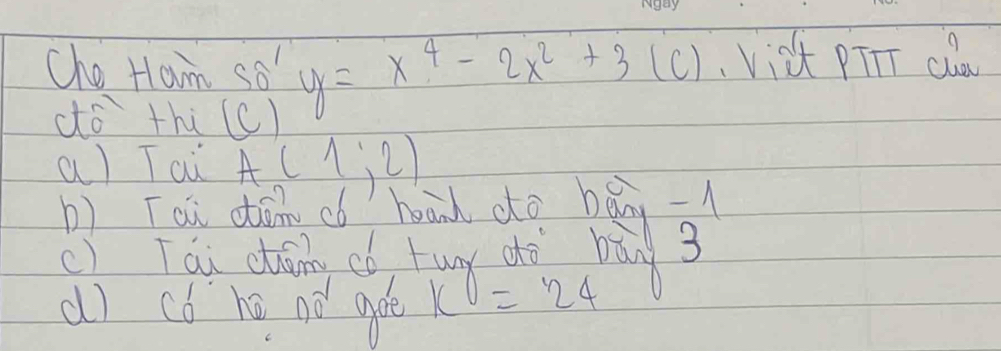 Ngày No.
Cho Hàm số y = x⁴ - 2x² + 3 (C). Viết PTTT của
đồ thi (C)
a) Tại A ( 1 ; 2 )
b) Tại điểm có hoành độ bằng -1
c) Tại điểm có tung độ bằng 3
d) Có hệ số góc K = 24